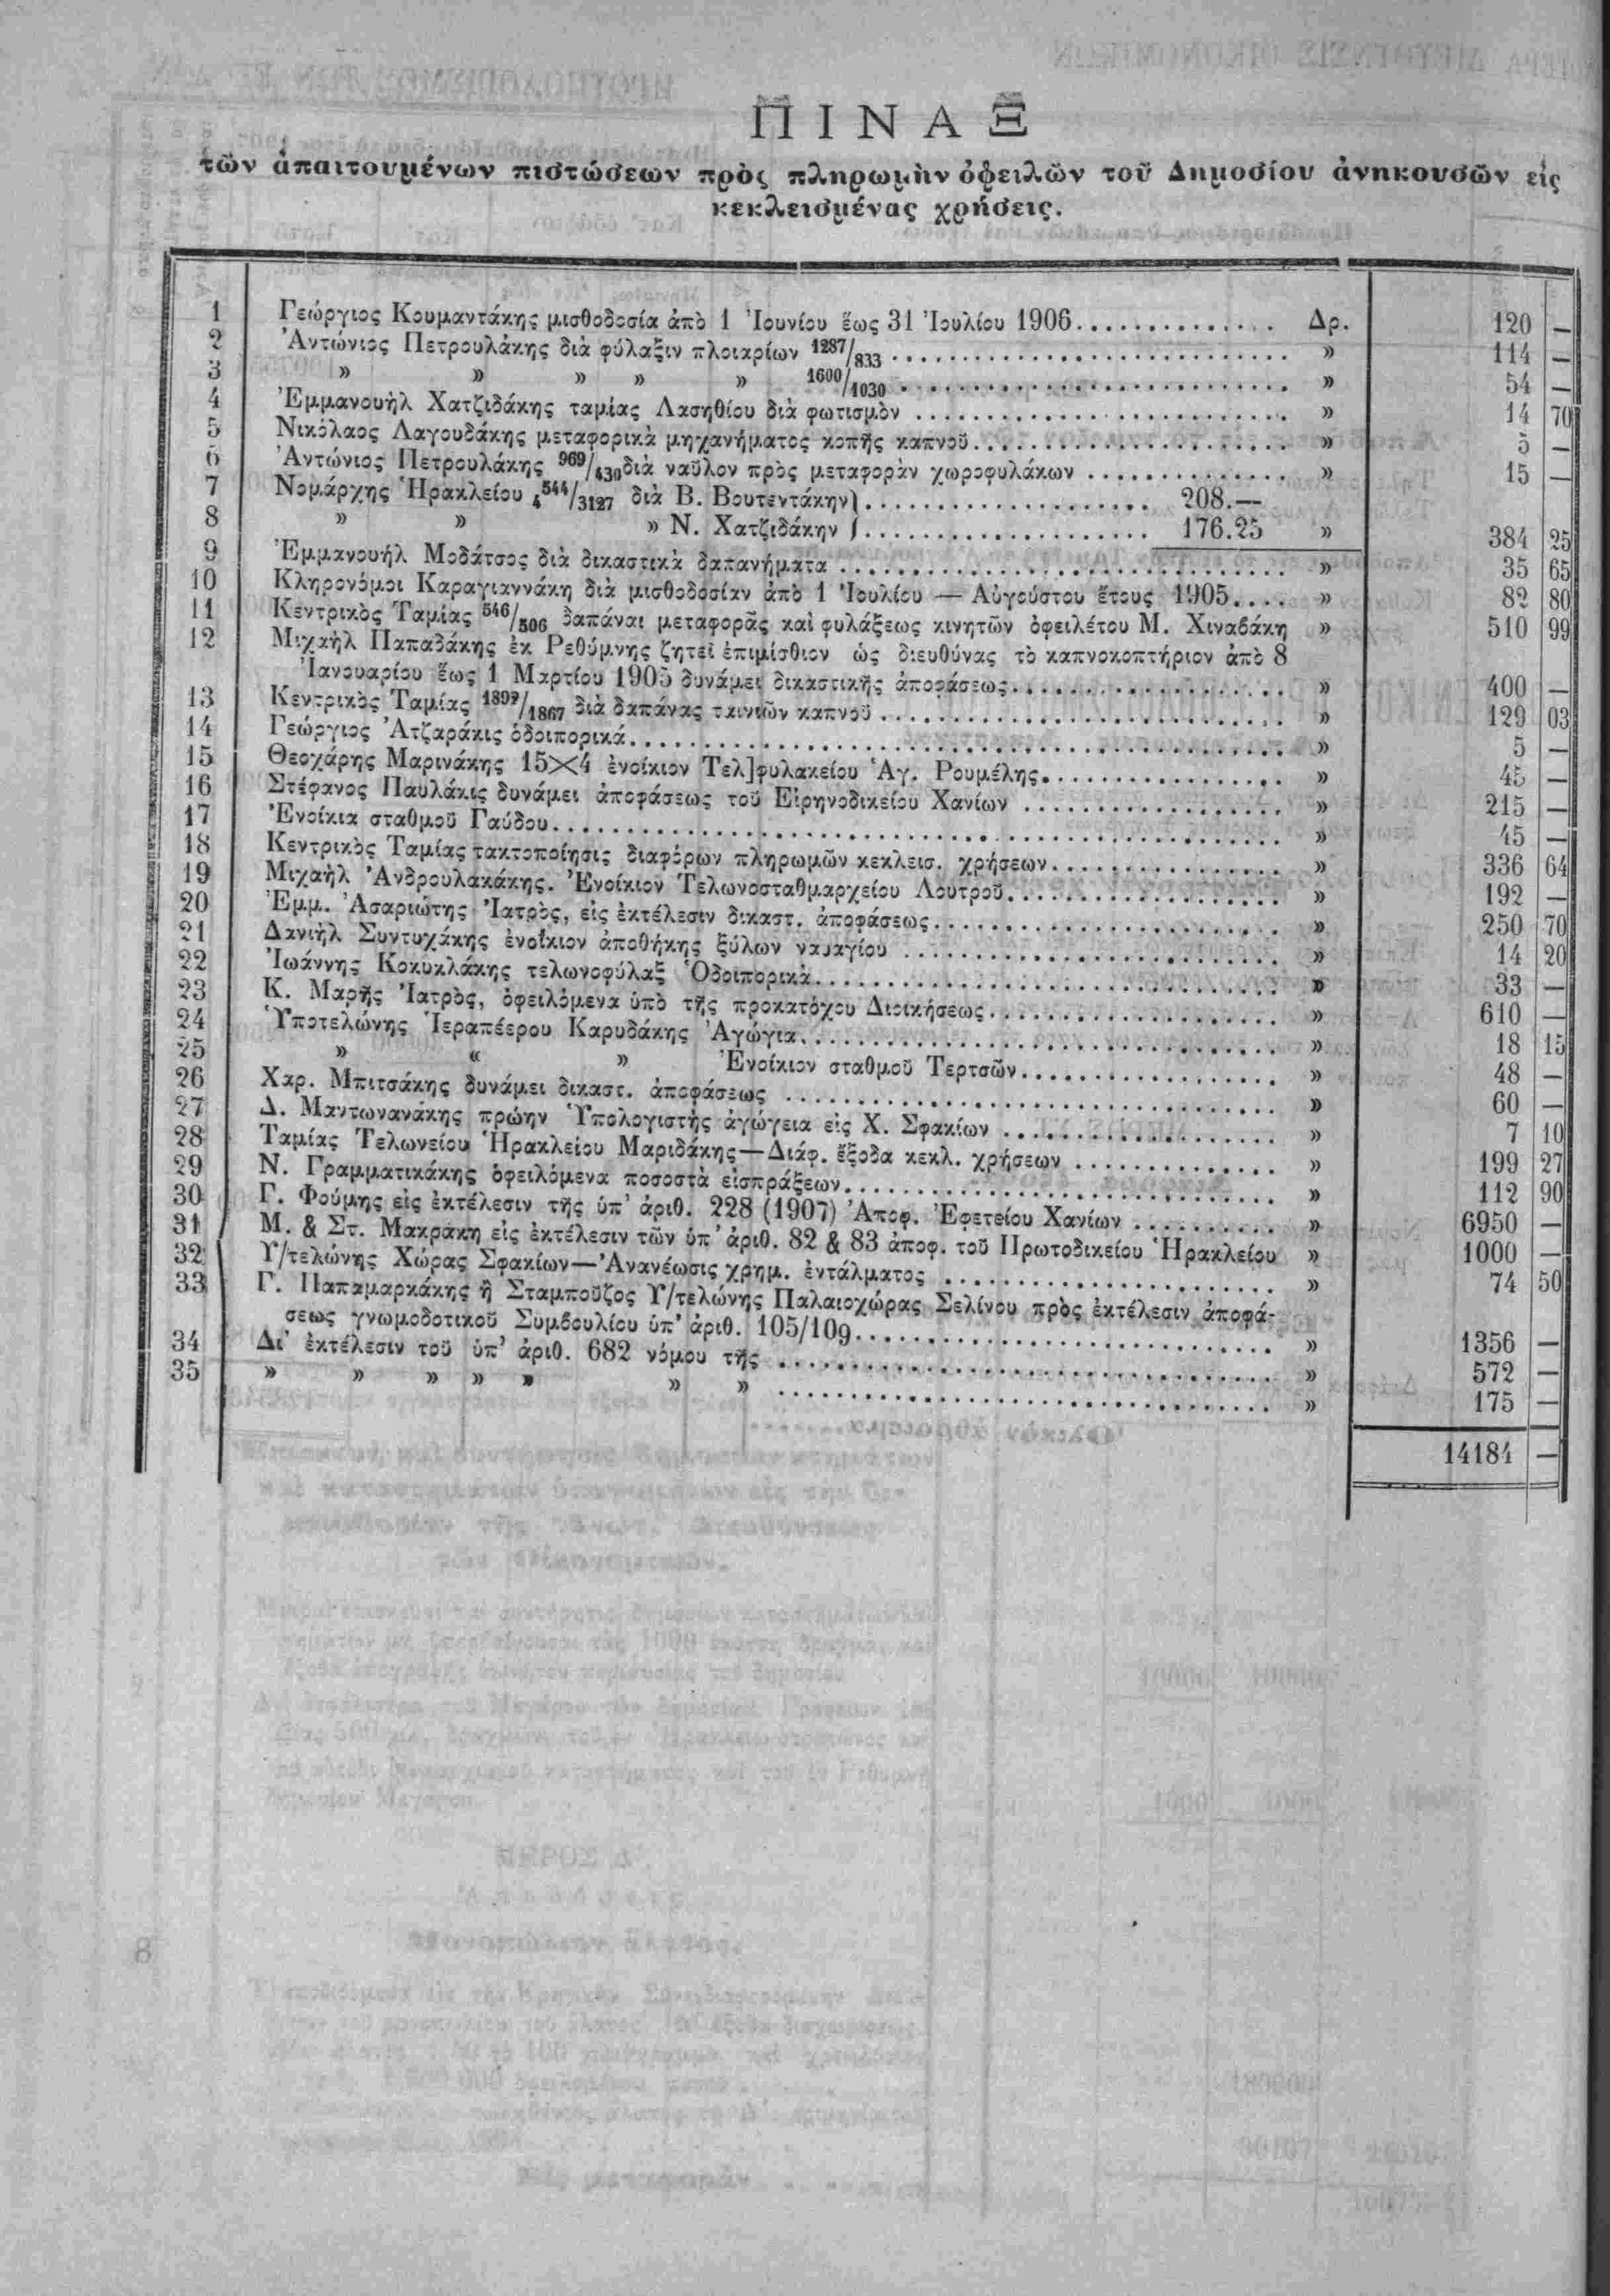 ΠΙΝΑΞ
τῶν ἀπαιτουμένων πιστώσεων πρὸς πληρωμὴν ὀφειλῶν τοῦ Δημοσίου ἀνηκουσῶν εἰς
κεκλεισμένας χρήσεις.
1 Γεώργιος Κουμαντάκης μισθοδοσία ἀπὸ 1 Ἰουνίου ἕως 31 Ἰουλίου 1906.............. Δρ. 120 —
2 Ἀντώνιος Πετρουλάκης διὰ φύλαξιν πλοιαρίων 1287/833 .............................. » 114 —
3 » » » » » 1600/1030 .............................. » 54 —
4 Ἐμμανουὴλ Χατζιδάκης ταμίας Λασηθίου διὰ φωτισμὸν ............................ » 14 70
5 Νικόλαος Λαγουδάκης μεταφορικὰ μηχανήματος κοπῆς καπνοῦ........................ » 5 —
6 Ἀντώνιος Πετρουλάκης 969/430 διὰ ναῦλον πρὸς μεταφορὰν χωροφυλάκων ............... » 15 —
7 Νομάρχης Ἡρακλείου 4544/3127 διὰ Β. Βουτεντάκην) ..................... 208.—
8 » » » Ν. Χατζιδάκην ( ..................... 176.25 » 384 25
9 Ἐμμανουὴλ Μοδάτσος διὰ δικαστικὰ δαπανήματα .................................. » 35 65
10 Κληρονόμοι Καραγιαννάκη διὰ μισθοδοσίαν ἀπὸ 1 Ἰουλίου — Αὐγούστου ἔτους 1905.... » 82 80
11 Κεντρικὸς Ταμίας 546/506 δαπάναι μεταφορᾶς καὶ φυλάξεως κινητῶν ὀφειλέτου Μ. Χιναδάκη » 510 99
12 Μιχαὴλ Παπαδάκης ἐκ Ρεθύμνης ζητεῖ ἐπιμίσθιον ὡς διευθύνας τὸ καπνοκοπτήριον ἀπὸ 8
Ἰανουαρίου ἕως 1 Μαρτίου 1905 δυνάμει δικαστικῆς ἀποφάσεως...................... » 400 —
13 Κεντρικὸς Ταμίας 1892/1867 διὰ δαπάνας ταινιῶν καπνοῦ .............................. » 129 03
14 Γεώργιος Ἀτζαράκις ὁδοιπορικά.................................................. » 5 —
15 Θεοχάρης Μαρινάκης 15×4 ἐνοίκιον Τελ]φυλακείου Ἁγ. Ρουμέλης................... » 45 —
16 Στέφανος Παυλάκις δυνάμει ἀποφάσεως τοῦ Εἰρηνοδικείου Χανίων .................... » 215 —
17 Ἐνοίκια σταθμοῦ Γαύδου........................................................ » 45 —
18 Κεντρικὸς Ταμίας τακτοποίησις διαφόρων πληρωμῶν κεκλεισ. χρήσεων................. » 336 64
19 Μιχαὴλ Ἀνδρουλακάκης. Ἐνοίκιον Τελωνοσταθμαρχείου Λουτροῦ..................... » 192 —
20 Ἐμμ. Ἀσαριώτης Ἰατρὸς, εἰς ἐκτέλεσιν δικαστ. ἀποφάσεως.......................... » 250 70
21 Δανιὴλ Συντυχάκης ἐνοίκιον ἀποθήκης ξύλων ναυαγίου ............................ » 14 20
22 Ἰωάννης Κοκυκλάκης τελωνοφύλαξ Ὁδοιπορικὰ.................................... » 33 —
23 Κ. Μαρῆς Ἰατρὸς, ὀφειλόμενα ὑπὸ τῆς προκατόχου Διοικήσεως...................... » 610 —
24 Ὑποτελώνης Ἱεραπέερου Καρυδάκης Ἀγώγια.................................... » 18 15
25 » « » Ἐνοίκιον σταθμοῦ Τερτσῶν.................... » 48 —
26 Χαρ. Μπιτσάκης δυνάμει δικαστ. ἀποφάσεως ...................................... » 60 —
27 Δ. Μαντωνανάκης πρώην Ὑπολογιστὴς ἀγώγεια εἰς Χ. Σφακίων ...................... » 7 10
28 Ταμίας Τελωνείου Ἡρακλείου Μαριδάκης—Διάφ. ἔξοδα κεκλ. χρήσεων ................ » 199 27
29 Ν. Γραμματικάκης ὀφειλόμενα ποσοστὰ εἰσπράξεων.................................. » 112 90
30 Γ. Φούμης εἰς ἐκτέλεσιν τῆς ὑπ' ἀριθ. 228 (1907) Ἀποφ. Ἐφετείου Χανίων ........... » 6950 —
31 Μ. & Στ. Μακράκη εἰς ἐκτέλεσιν τῶν ὑπ' ἀριθ. 82 & 83 ἀποφ. τοῦ Πρωτοδικείου Ἡρακλείου » 1000 —
32 Υ/τελώνης Χώρας Σφακίων—Ἀνανέωσις χρημ. ἐντάλματος ......................... » 74 50
33 Γ. Παπαμαρκάκης ἢ Σταμποῦζος Υ/τελώνης Παλαιοχώρας Σελίνου πρὸς ἐκτέλεσιν ἀποφά-
σεως γνωμοδοτικοῦ Συμβουλίου ὑπ' ἀριθ. 105/109................................. » 1356 —
34 Δι' ἐκτέλεσιν τοῦ ὑπ' ἀριθ. 682 νόμου τῆς ....................................... » 572 —
35 » » » » » » » ....................................... » 175 —
14184 —